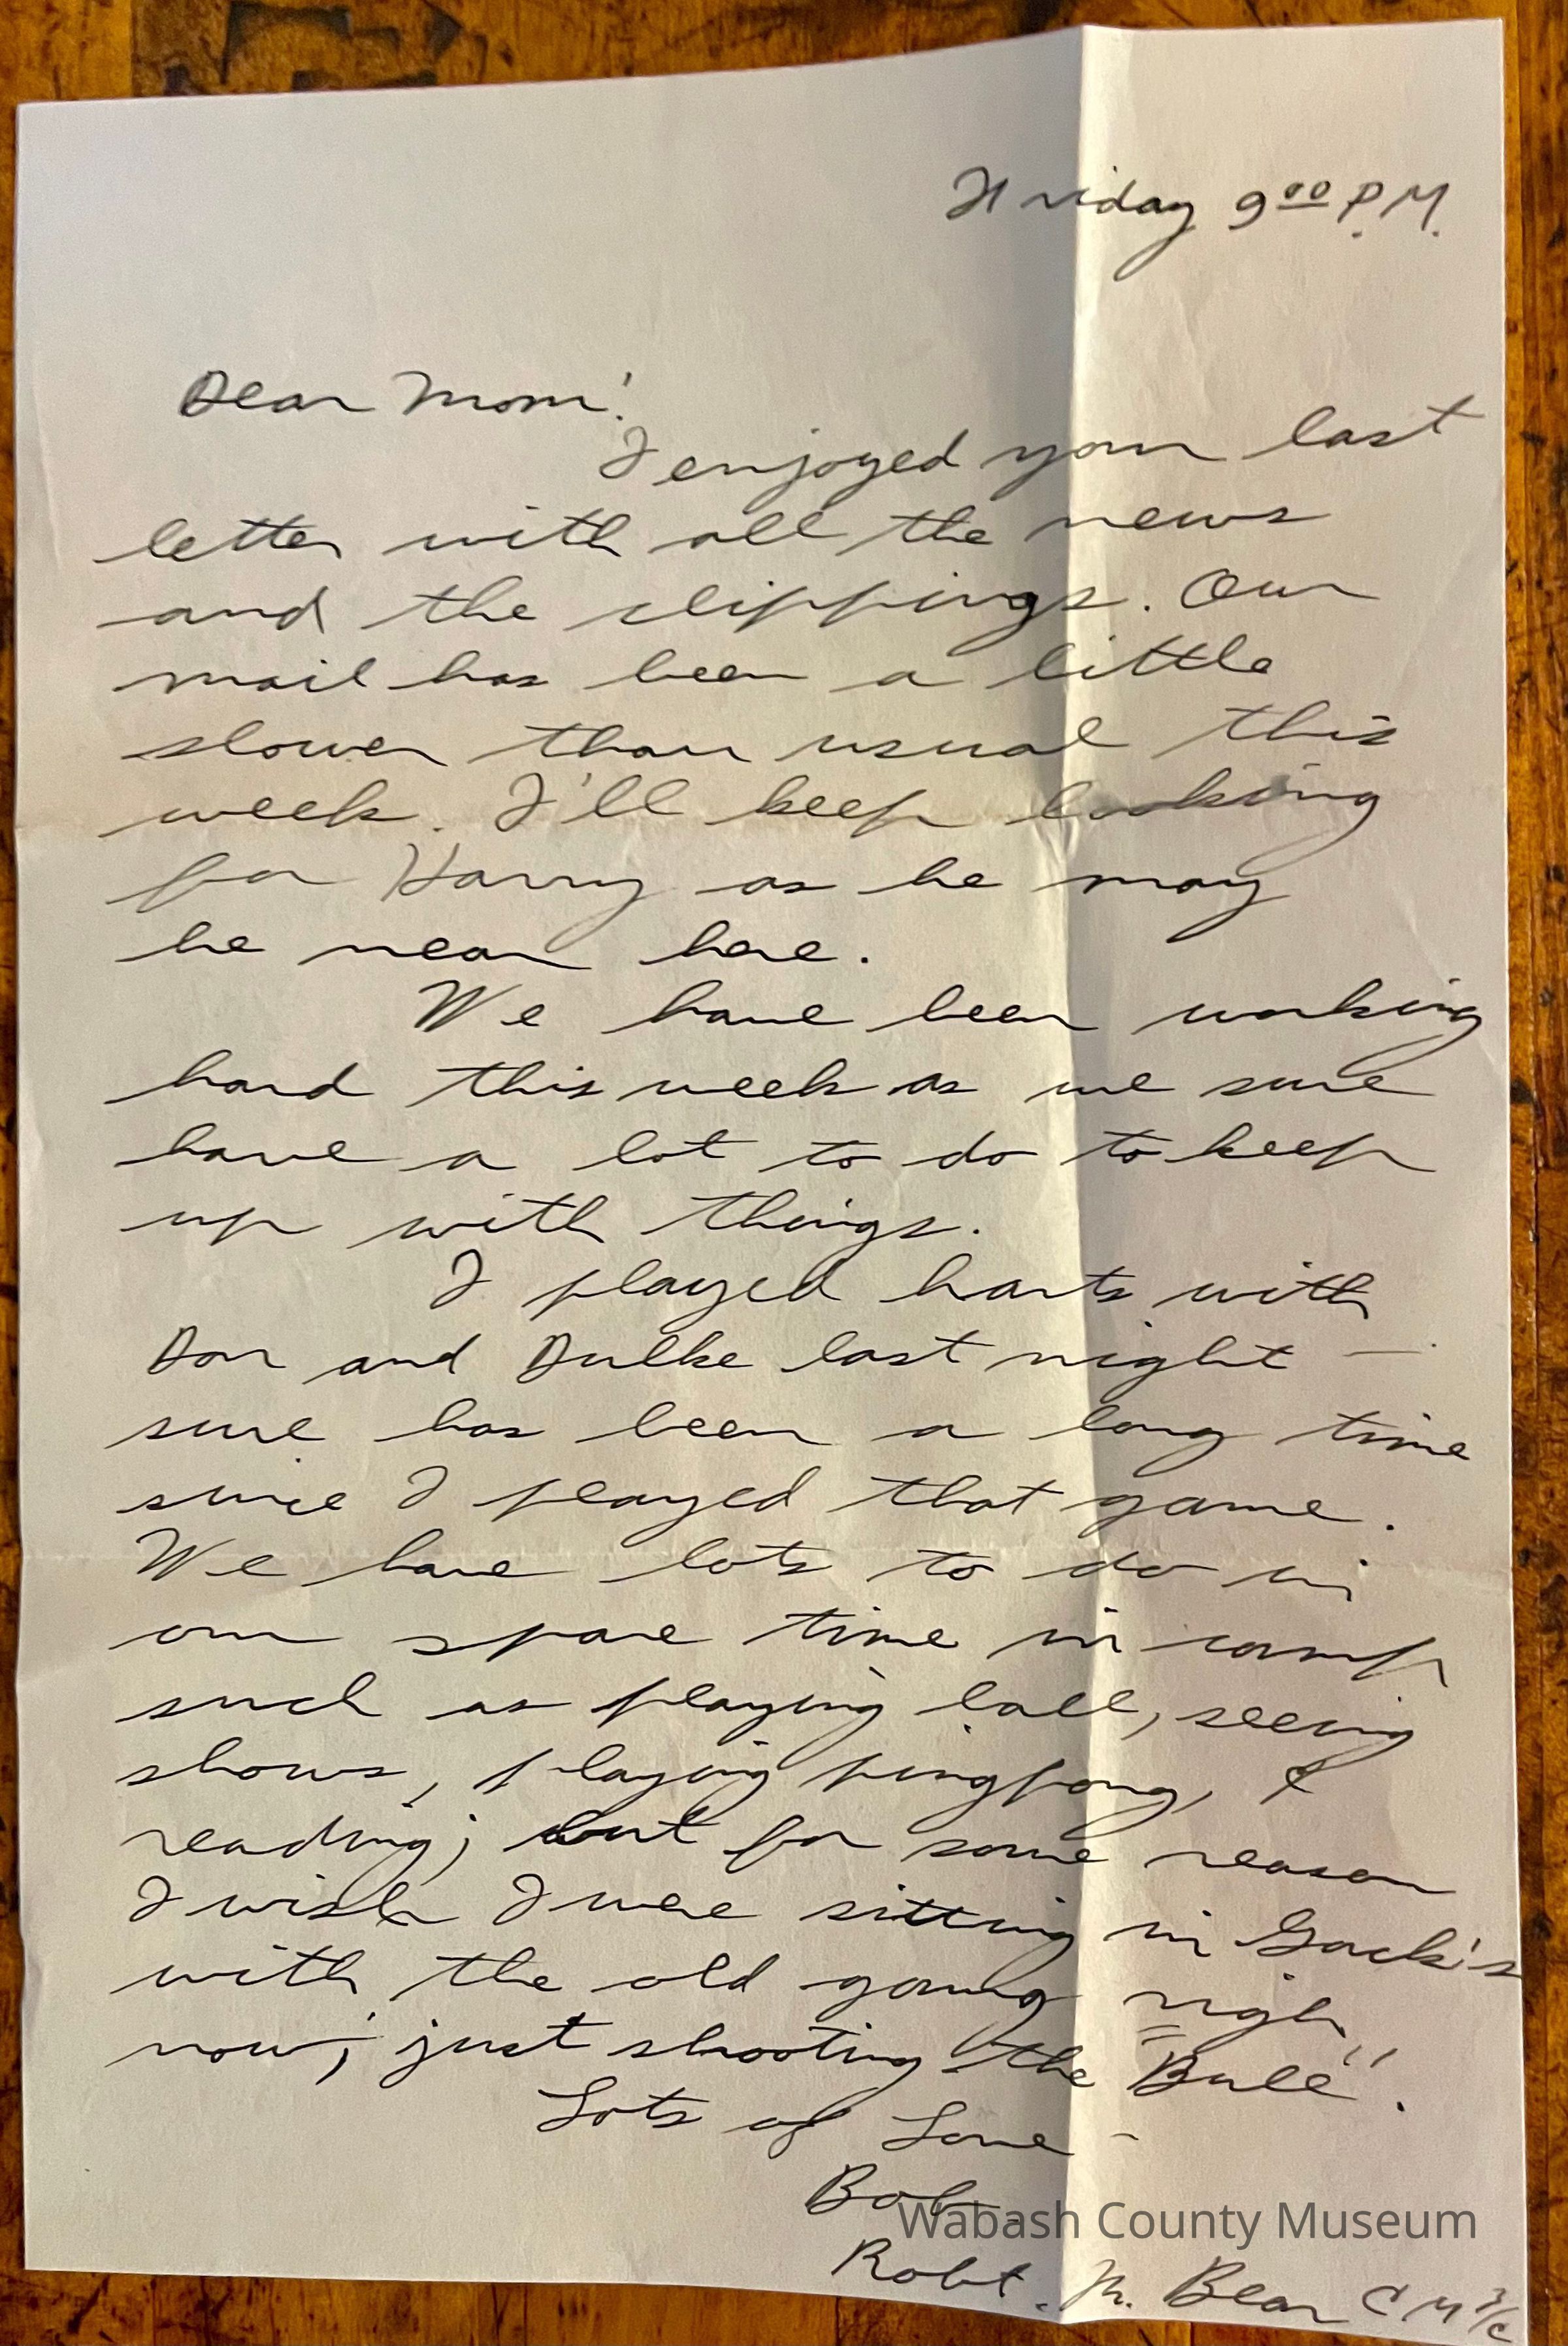 Friday 9:00 P.M.
Dear Mom!
I enjoyed your last
letter with all the news
and the clippings. Our
mail has been a little
slower than usual this
week. I'll keep looking
for Harry as he may
be near here.
We have been working
hard this week as we sure
have a lot to do to keep
up with things.
I played harts with
Don and Dulke last night —
sure has been a long time
since I played that game.
We have lots to do in
our spare time in camp
such as playing ball, seeing
shows, playing pingpong, &
reading; but for some reason
I wish I were sitting in Gack's
with the old gang righ
now; just shooting the "Bull".
Lots of Love -
Bob.
Wabash County Museum
Robt. M. Bear C M 3/c